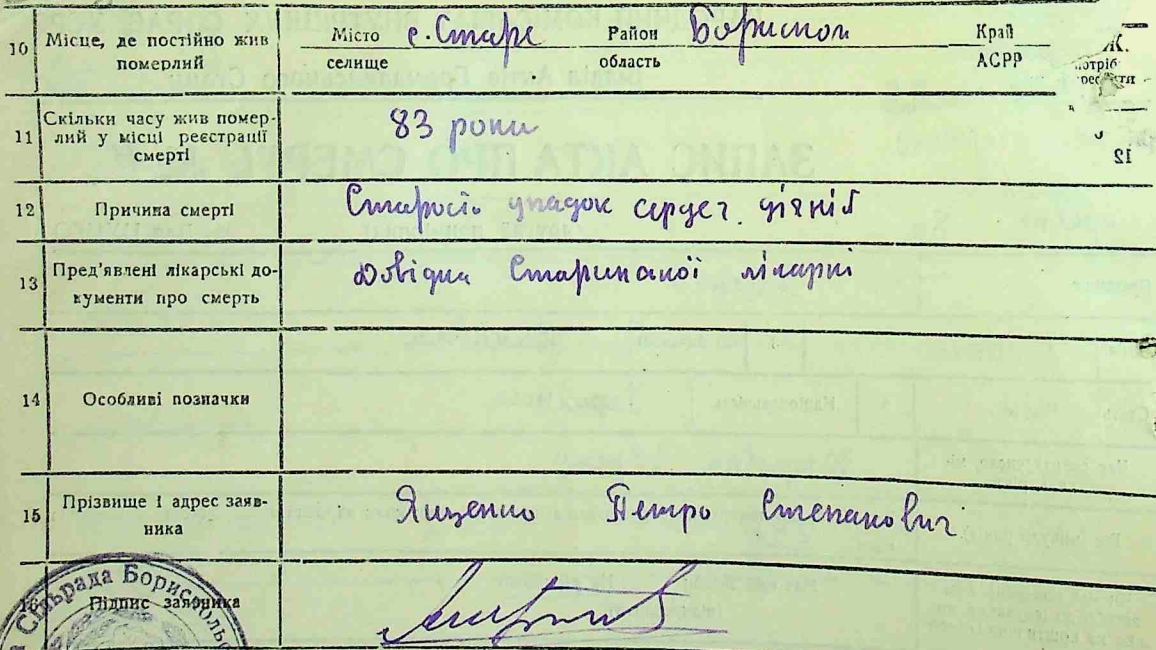 10 Місце, де постійно жив померлий Місто селище с. Старе Район область Бориспол Край АСРР
11 Скільки часу жив померлий у місці реєстрації смерті 83 роки
12 Причина смерті Старость упадок сердеч. діяній
13 Пред'явлені лікарські документи про смерть Довідка Старинської лікарні
14 Особливі позначки
15 Прізвище і адрес заявника Ященко Петро Степанович
16 Підпис заявника
Сільрада Бориспольс